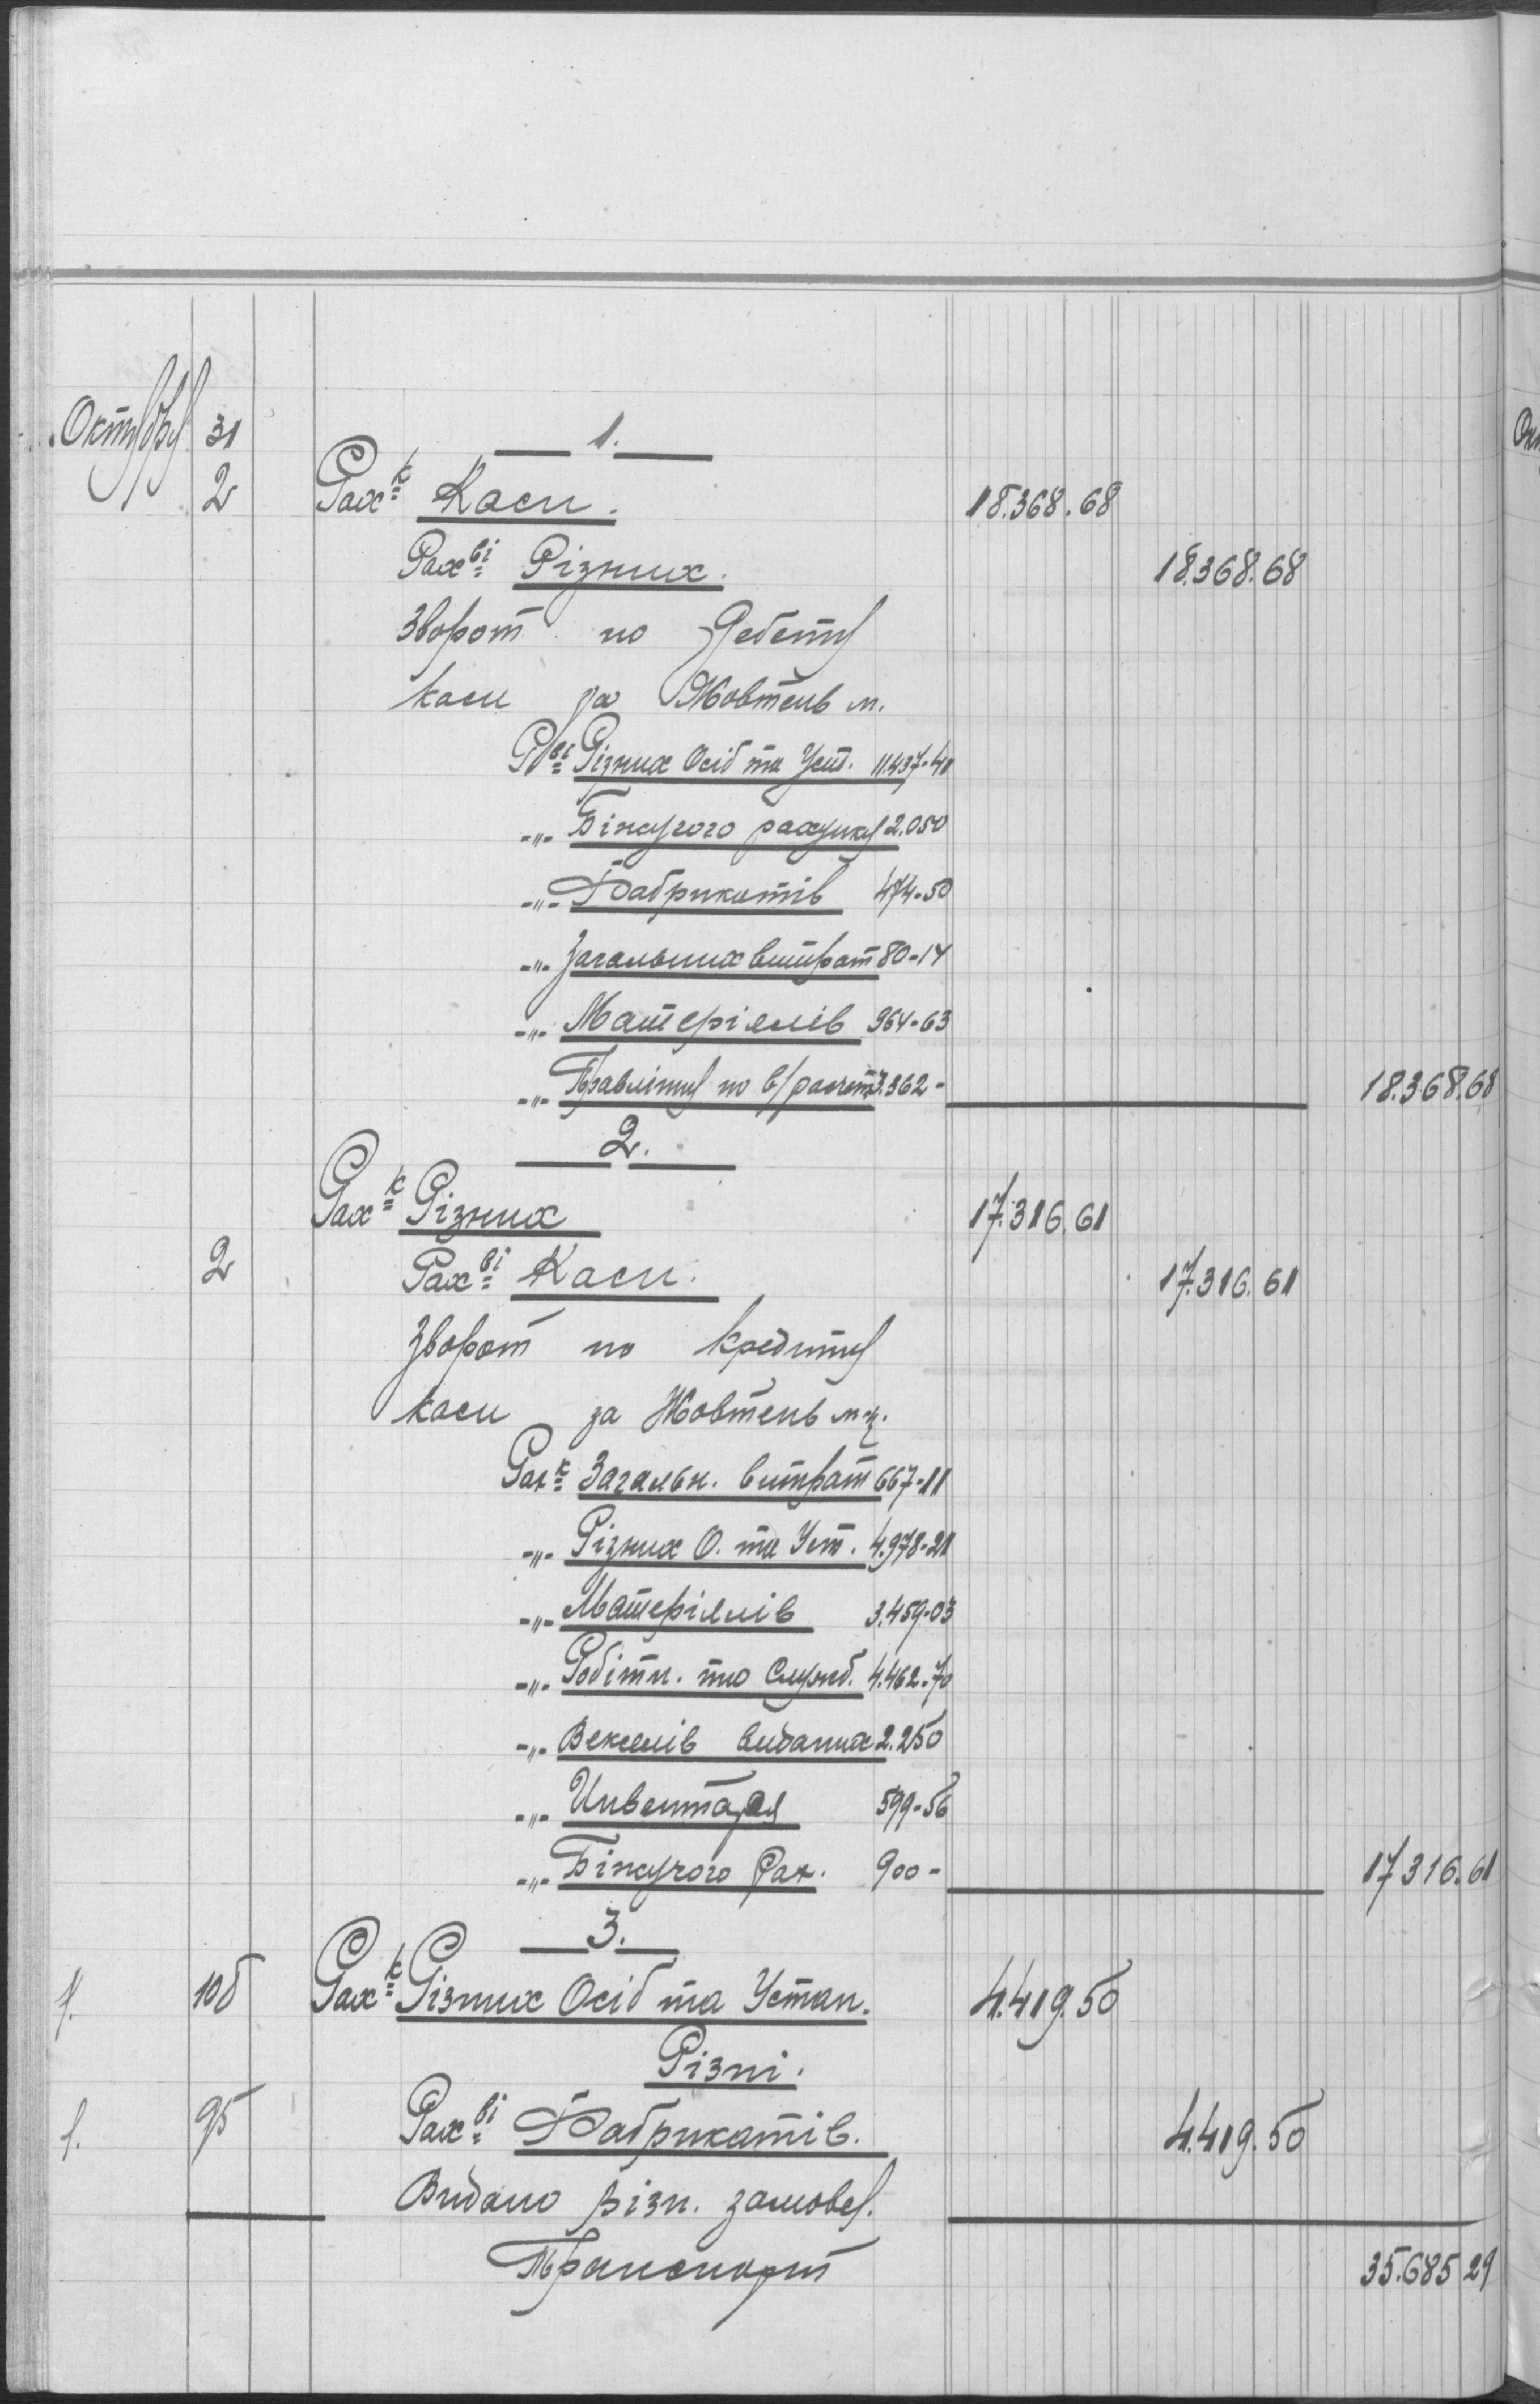 Октубру 31
1.
2 Рахк Каси. 18.368.68
Рахві Різних. 18.368.68
Зворот по Дебету
каси за Жовтень м.
Рві Різних Осіб та Уст. 11.437-41
-„- Біжучого рахунку 2.050
-„- Фабрикатів 474-50
-„- Загальних витрат 80-14
-„- Матеріялів 964-63
-„- Правлінну по в/расчет. 3.362- 18.368.68
2.
Рахк Різних 17.316.61
2 Рахві Каси. 17.316.61
Зворот по Кредиту
каси за Жовтень м-ц.
Рахк Загальн. витрат 667-11
-„- Різних О. та Уст. 4.978-21
-„- Матеріялів 3.459-03
-„- Робітн. та Служб. 4.462-70
-„- Векселів виданих 2.250
-„- Инвентаря 599-56
-„- Біжучого Рах. 900- 17316.61
3.
1. 108 Рахк Різних Осіб та Устан. 4.419.50
Різні.
1. 95 Рахві Фабрикатів. 4.419.50
Видано різн. замовц.
Транспорт 35.685 29
Ок